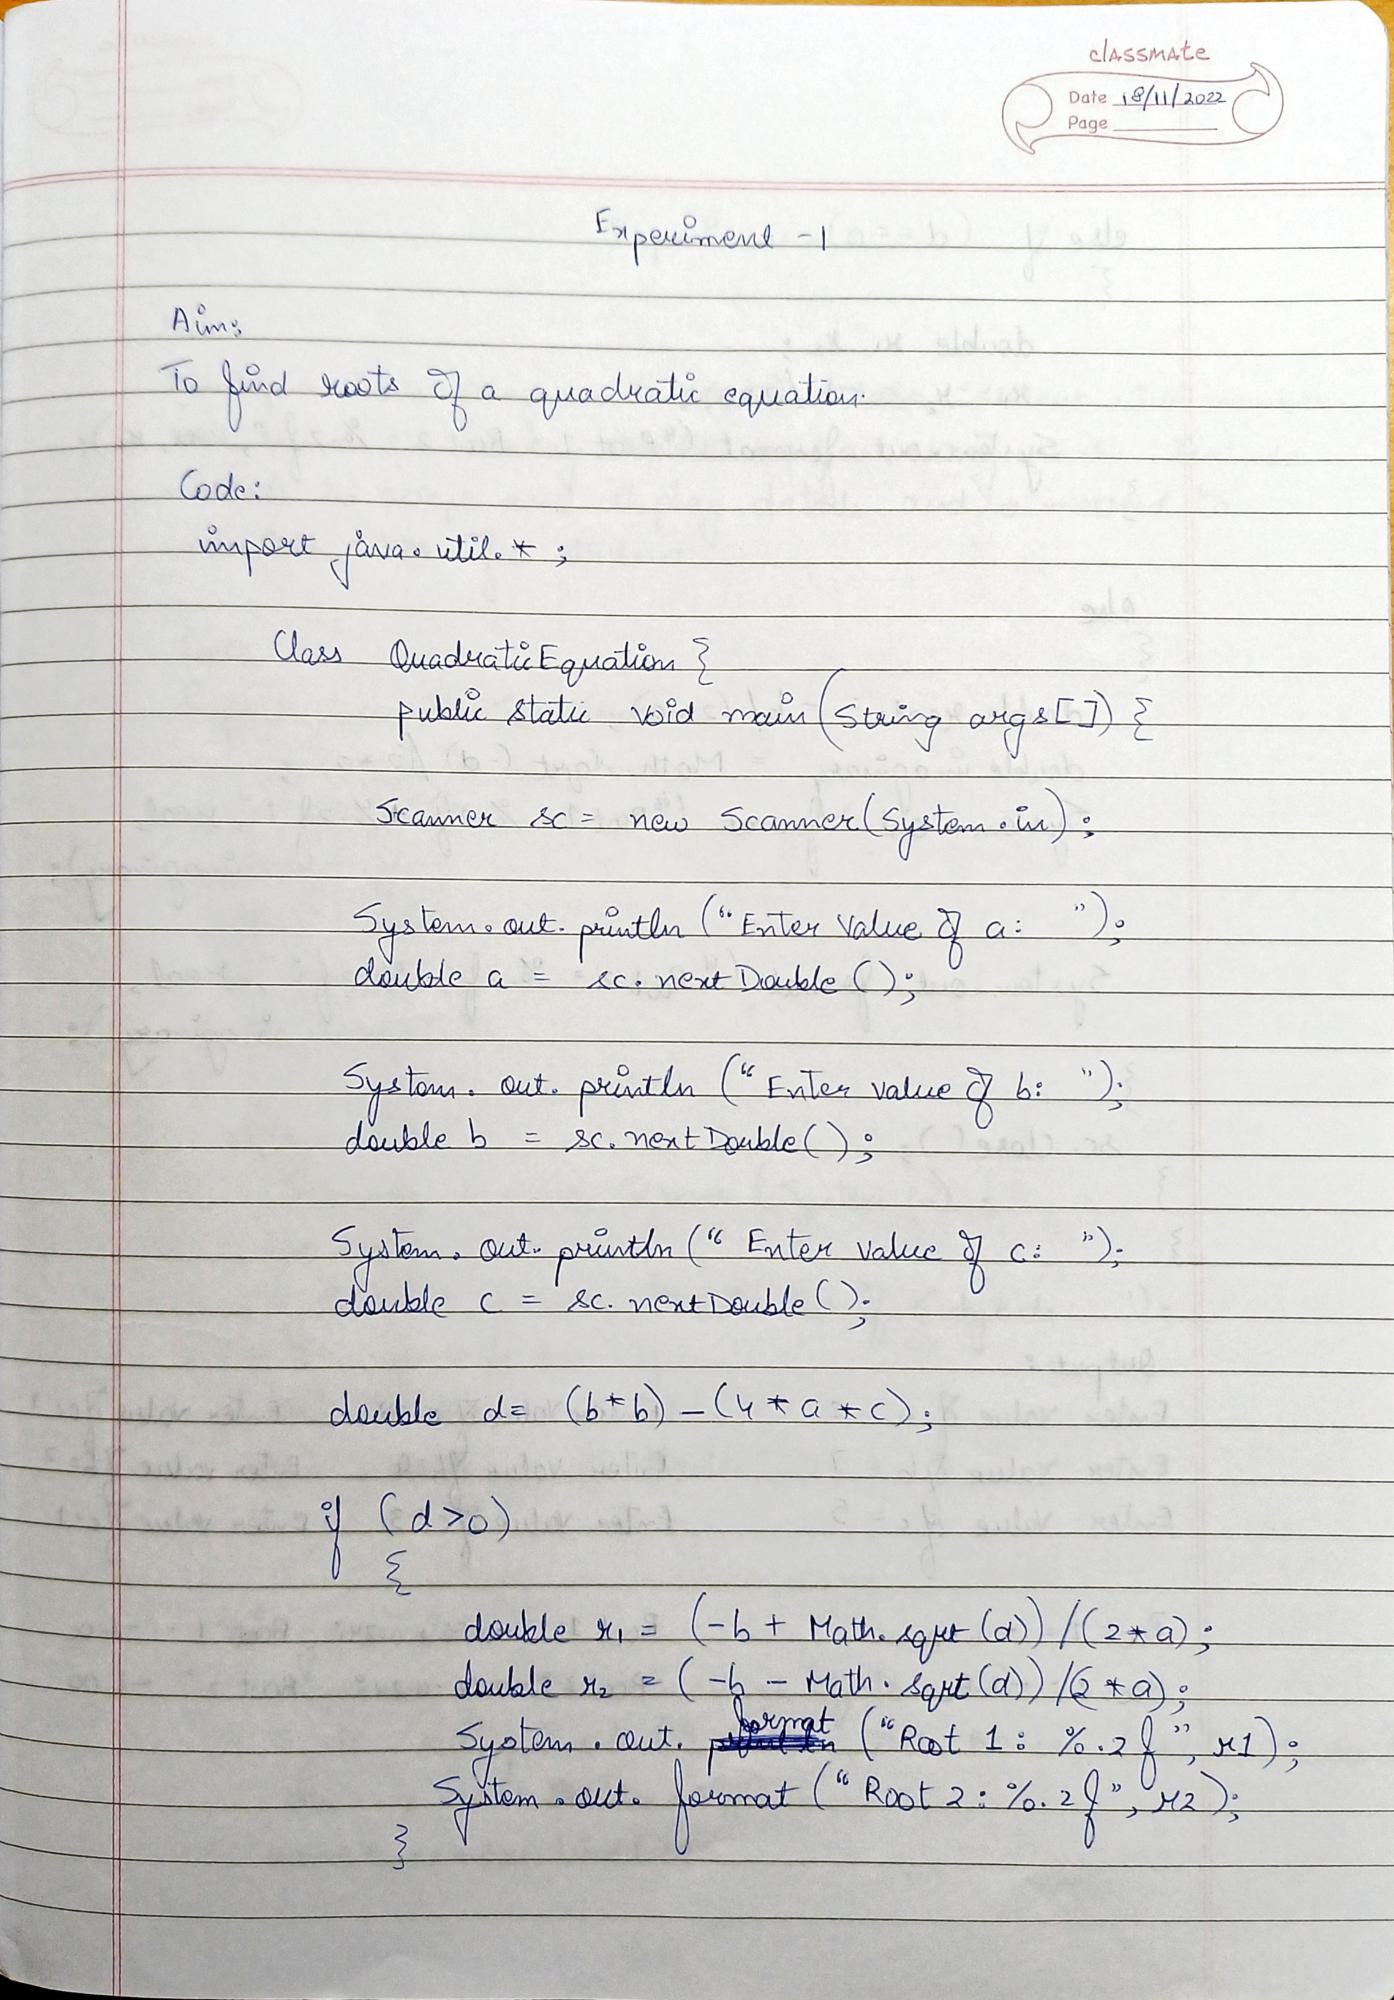 classmate
Date 18/11/2022
Page
Experiment -1
Aim:
To find roots of a quadratic equation.
Code:
import java.util.*;
Class QuadraticEquation {
public static void main(String args[]) {
Scanner sc = new Scanner(System.in);
System.out.println ("Enter value of a: ");
double a = sc.nextDouble ();
System.out.println ("Enter value of b: ");
double b = sc.nextDouble();
System.out.println (" Enter value of c: ");
double c = sc.nextDouble();
double d= (b*b) - (4*a*c);
if (d>0)
{
double r1 = (-b + Math.sqrt(d)) / (2*a);
double r2 = (-b - Math.sqrt(d)) / (2*a);
System.out.format ("Root 1: %.2f", r1);
System.out.format ("Root 2: %.2f", r2);
}